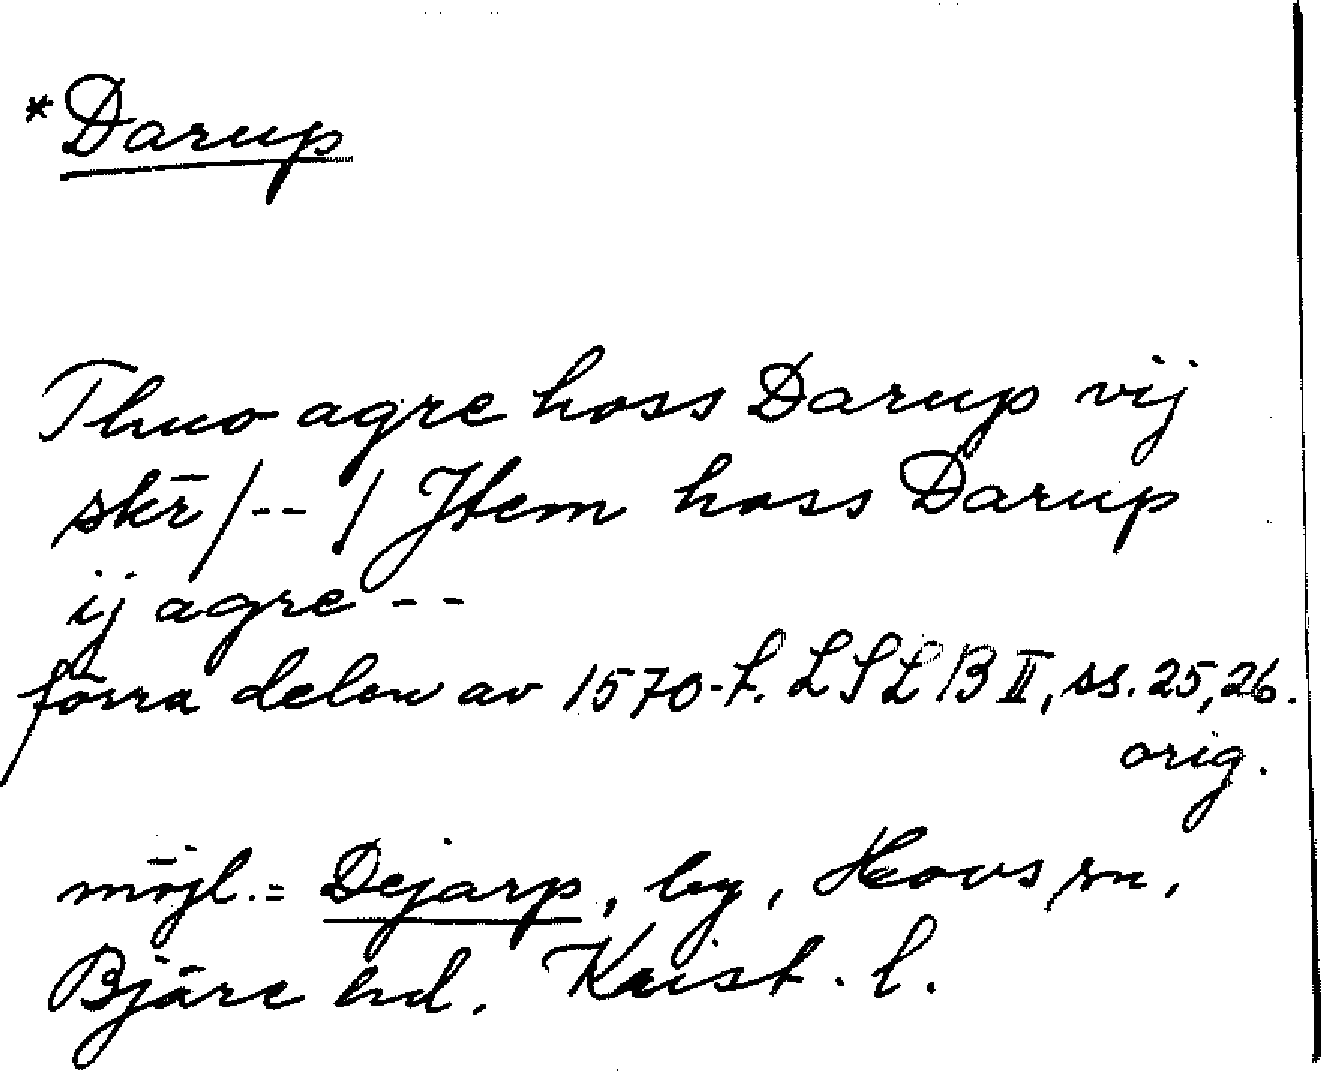 *Darup
Thuo agre hoss Darup vij
skr̄ /-- / Jtem hoss Darup
ij agre --
förra delen av 1570-t. LSLB II, ss. 25, 26.
orig.
möjl. = Dejarp, by, Hovs sn,
Bjäre hd, Krist. l.